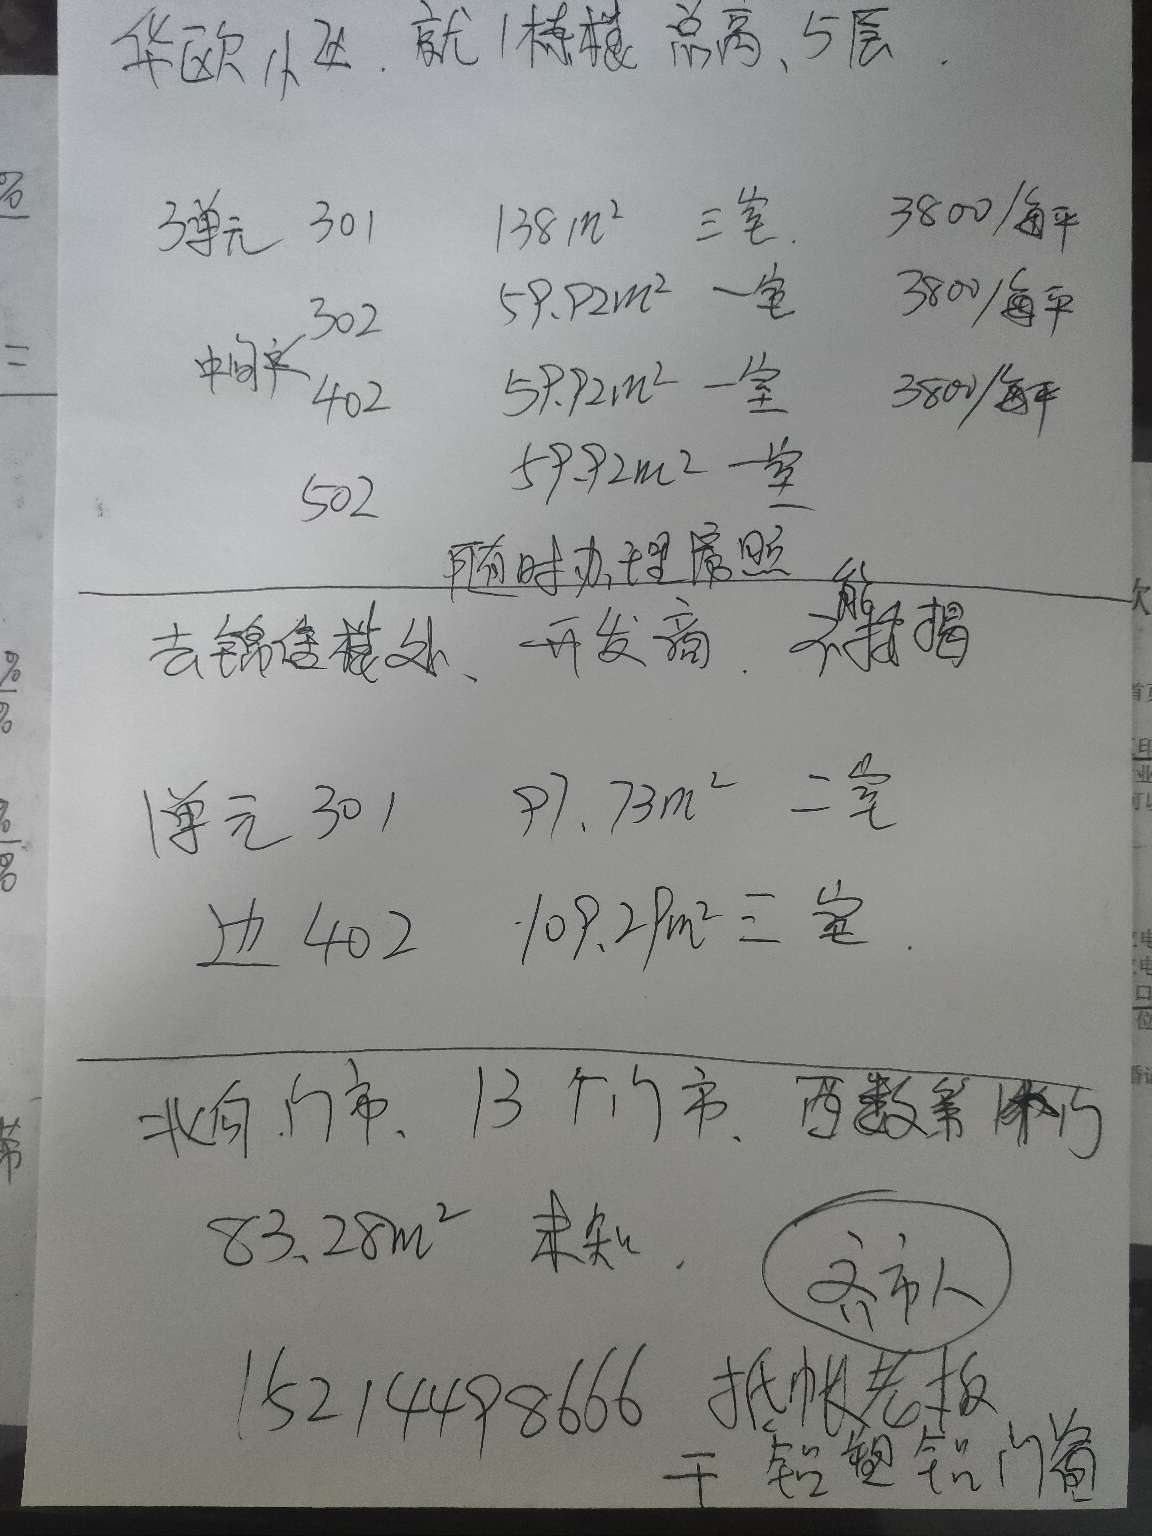 华欧小区.就1栋楼 总高、5层.
3单元 301 138m² 三室. 3800/每平
302 59.92m² 一室 3800/每平
中间户
402 59.92m² 一室 3800/每平
502 59.92m² 一室
随时办理房照
去锦佳楼处、开发商. 不能按揭
1单元 301 97.73m² 二室
边 402 109.29m² 三室.
北向门市、13个门市、两数第
83.28m² 未知.
齐市人
15214498666 抵帐老板
干 铝塑铝门窗